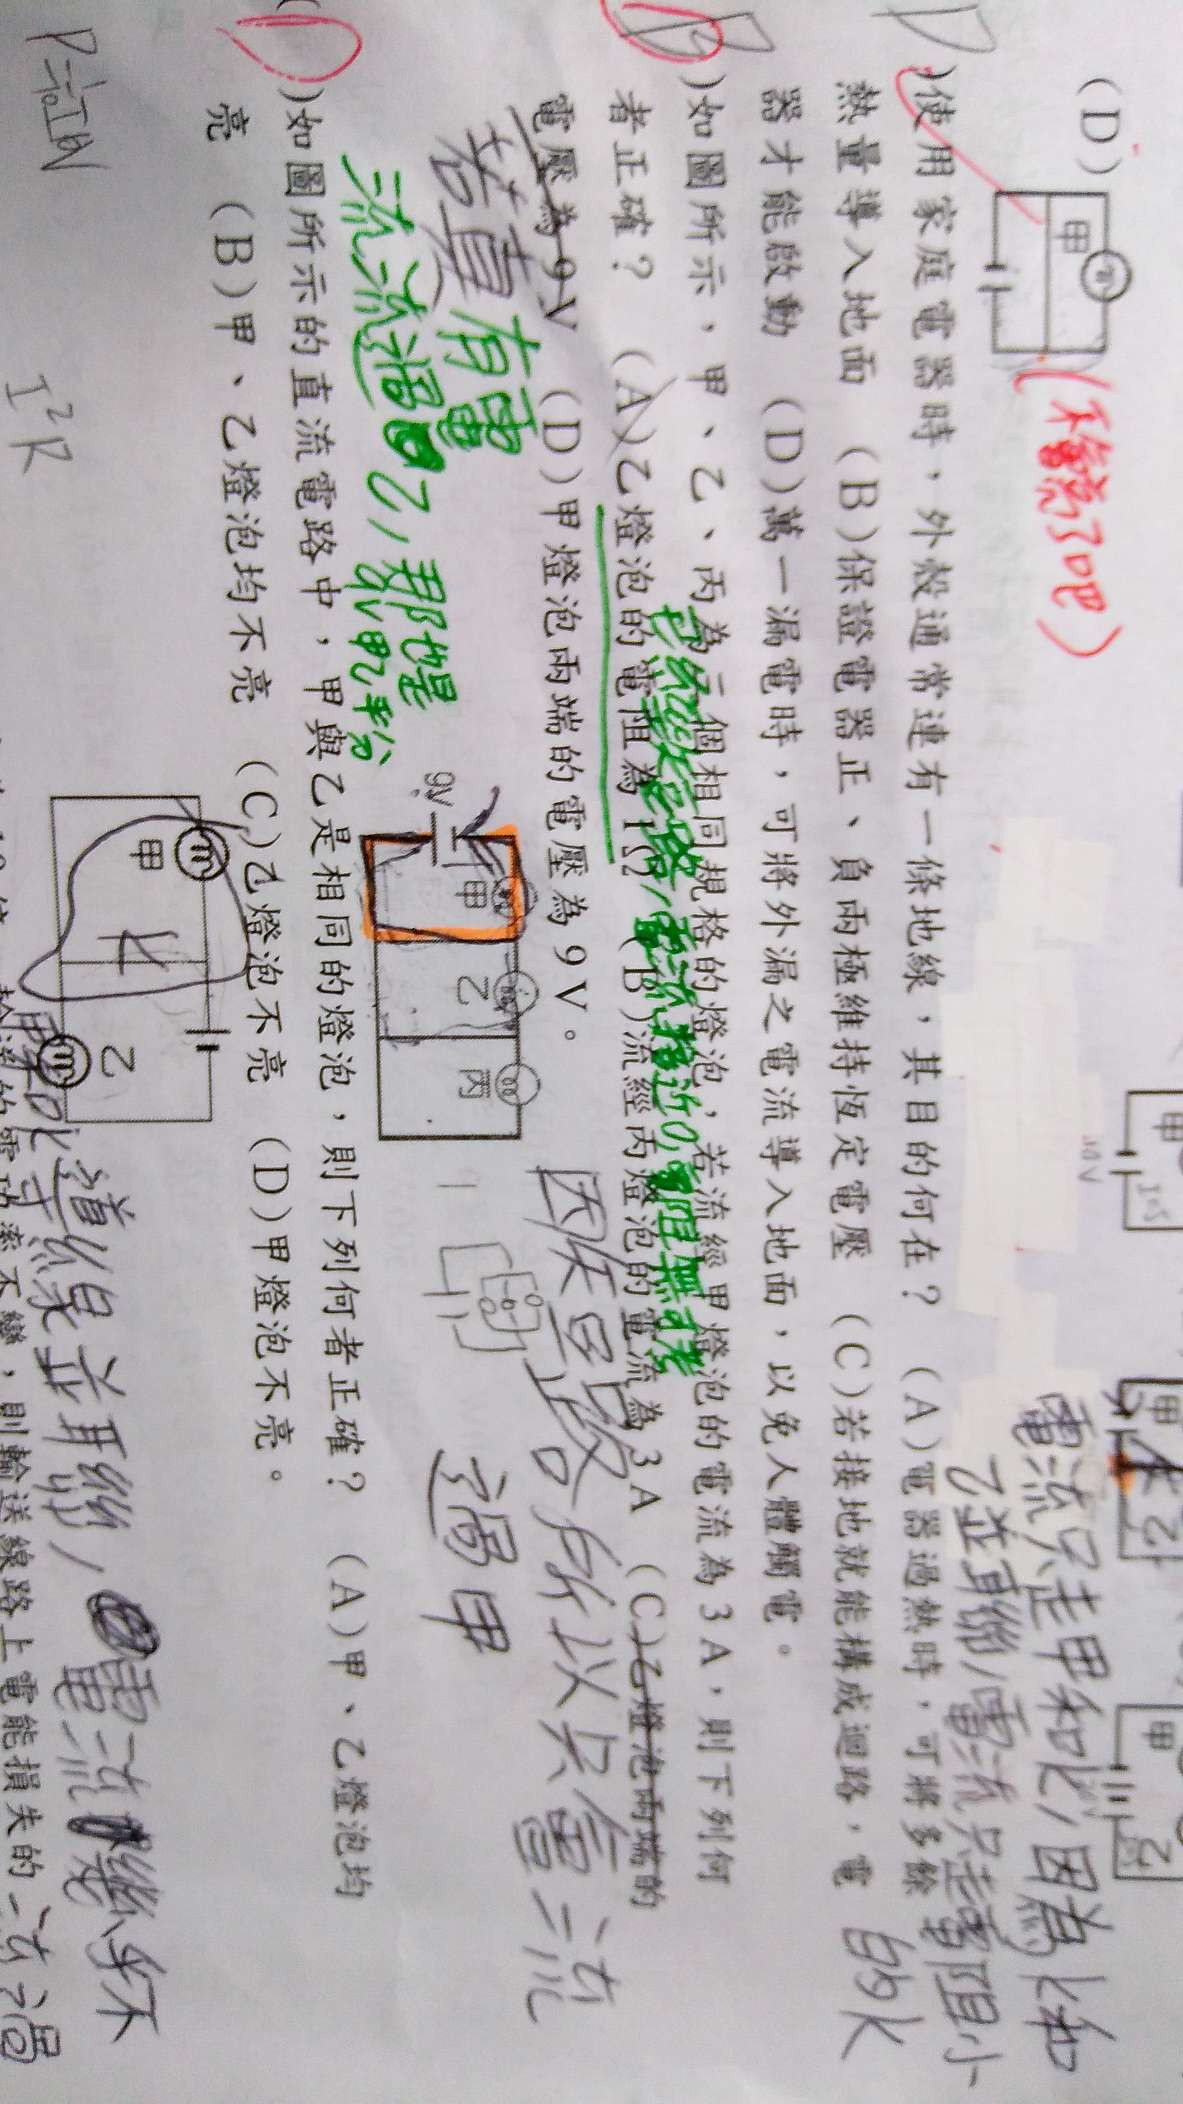 (D)
甲
(不會亮了吧)
甲
110V
甲
乙
甲
乙
電流只走甲和K,因為K和
乙並聯,電流只走電阻小
的K
D
)使用家庭電器時,外殼通常連有一條地線,其目的何在? (A)電器過熱時,可將多餘
熱量導入地面 (B)保證電器正、負兩極維持恆定電壓 (C)若接地就能構成迴路,電
器才能啟動 (D)萬一漏電時,可將外漏之電流導入地面,以免人體觸電。
B
)如圖所示,甲、乙、丙為三個相同規格的燈泡,若流經甲燈泡的電流為3A,則下列何
者正確? (A)乙燈泡的電阻為1Ω (B)流經丙燈泡的電流為3A (C)乙燈泡兩端的
電壓為9V (D)甲燈泡兩端的電壓為9V。
若真有電
流流過乙,那也是
9V平分
9V
甲
乙
丙
因短路所以只會流
過甲
(D
)如圖所示的直流電路中,甲與乙是相同的燈泡,則下列何者正確? (A)甲、乙燈泡均
亮 (B)甲、乙燈泡均不亮 (C)乙燈泡不亮 (D)甲燈泡不亮。
甲
K
乙
甲和導線並聯,電流
流過
P=
I²R
輸送的電功率不變,則輸送線路上電能損失的